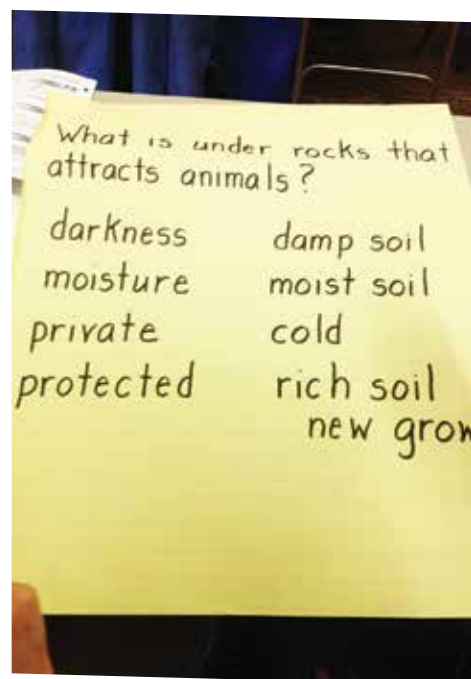 What is under rocks that
attracts animals?
darkness
moisture
private
protected
damp soil
moist soil
cold
rich soil
new grow